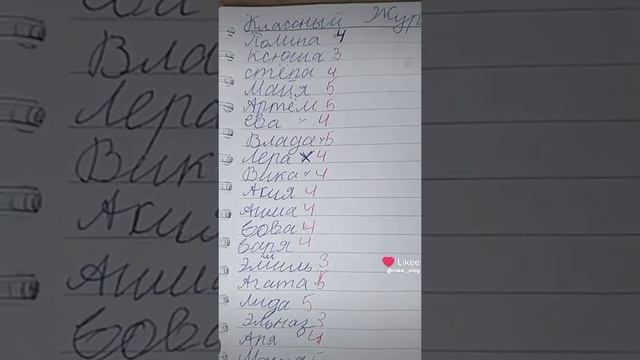 Классный Жур
Полина 4
Ксюша 3
Стёпа 4
Майя 5
Артём 5
Ева 4
Влада 5
Лера 4
Вика 4
Акия 4
Аиша 4
Вова 4
Варя 4
Эмиль 3
Агата 5
Лида 5
Эльназ 3
Аря 4
Likee